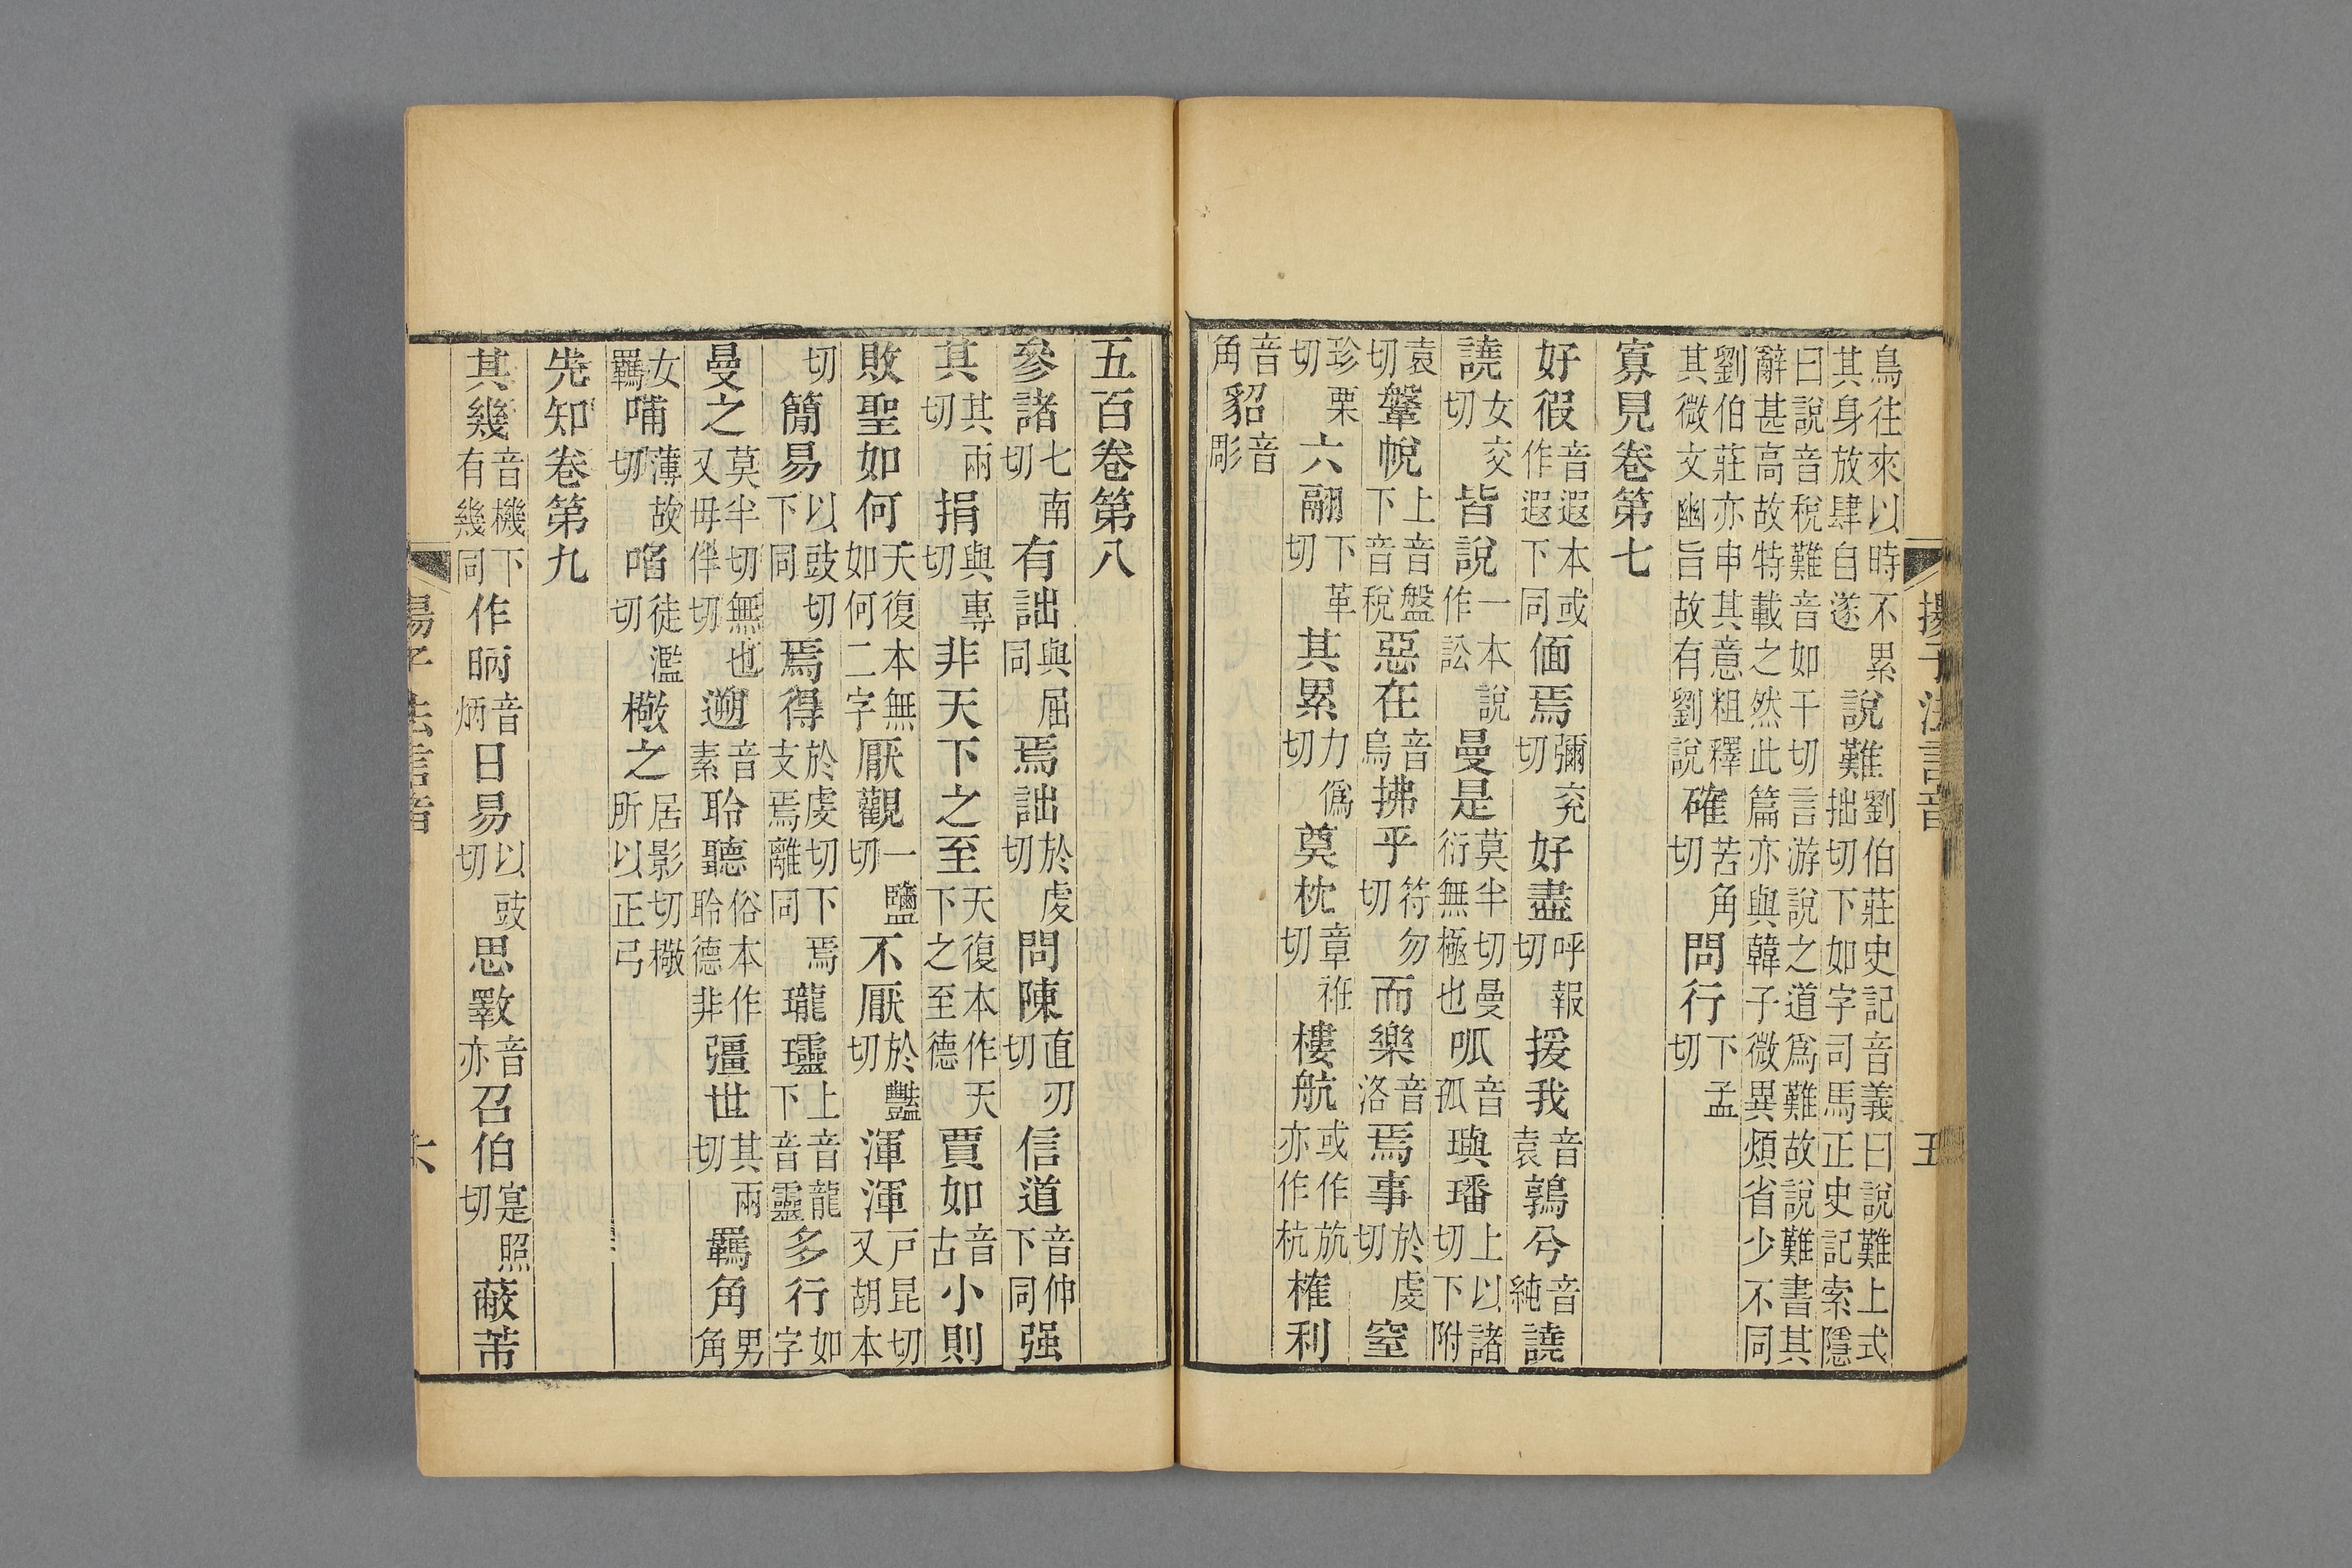 揚子法言音　五
鳥往來以時不累其身放肆自遂說難劉伯莊史記音義曰說難上式拙切下如字司馬正史記索隱
曰說音稅難音如干切言游說之道爲難故說難書其辭甚高故特載之然此篇亦與韓子微異煩省少不同
劉伯莊亦申其意粗釋其微文幽旨故有劉說確苦角切問行下孟切
寡見卷第七
好徦音遐本或作遐下同偭焉彌兖切好盡呼報切援我音袁鶉兮音純譊
譊女交切皆說一本說作訟曼是莫半切曼衍無極也呱音孤璵璠上以諸切下附
袁切鞶帨上音盤下音稅惡在音烏拂乎符勿切而樂音洛焉事於虔切窒
珍栗切六翮下革切其累力僞切奠枕章袵切樓航或作斻亦作杭榷利
音角貂音彫
五百卷第八
參諸七南切有詘與屈同焉詘於虔切問陳直刃切信道音伸下同强
其其兩切捐與專切非天下之至天復本作天下之至德賈如音古小則
敗聖如何天復本無如何二字厭觀一鹽切不厭於豔切渾渾戸昆切又胡本
切簡易以豉切下同焉得於虔切下焉支焉離同瓏璶上音龍下音靈多行如字
曼之莫半切無也又毋伴切遡音素聆聽俗本作聆德非彊世其兩切羈角男角
女羈哺薄故切啗徒濫切檄之居影切檄所以正弓
先知卷第九
其幾音機下有幾同作昞音炳日易以豉切思斁音亦召伯寔照切蔽芾
揚子法言音　六